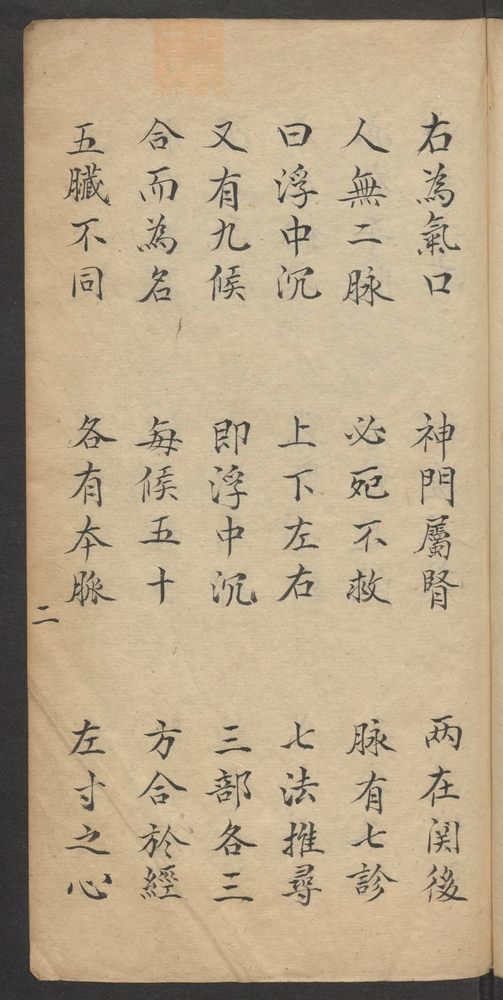 右為氣口 神門屬腎 两在関後
人無二脉 必死不救 脉有七診
曰浮中沉 上下左右 七法推尋
又有九候 即浮中沉 三部各三
合而為名 每候五十 方合於經
五臟不同 各有本脈 左寸之心
二